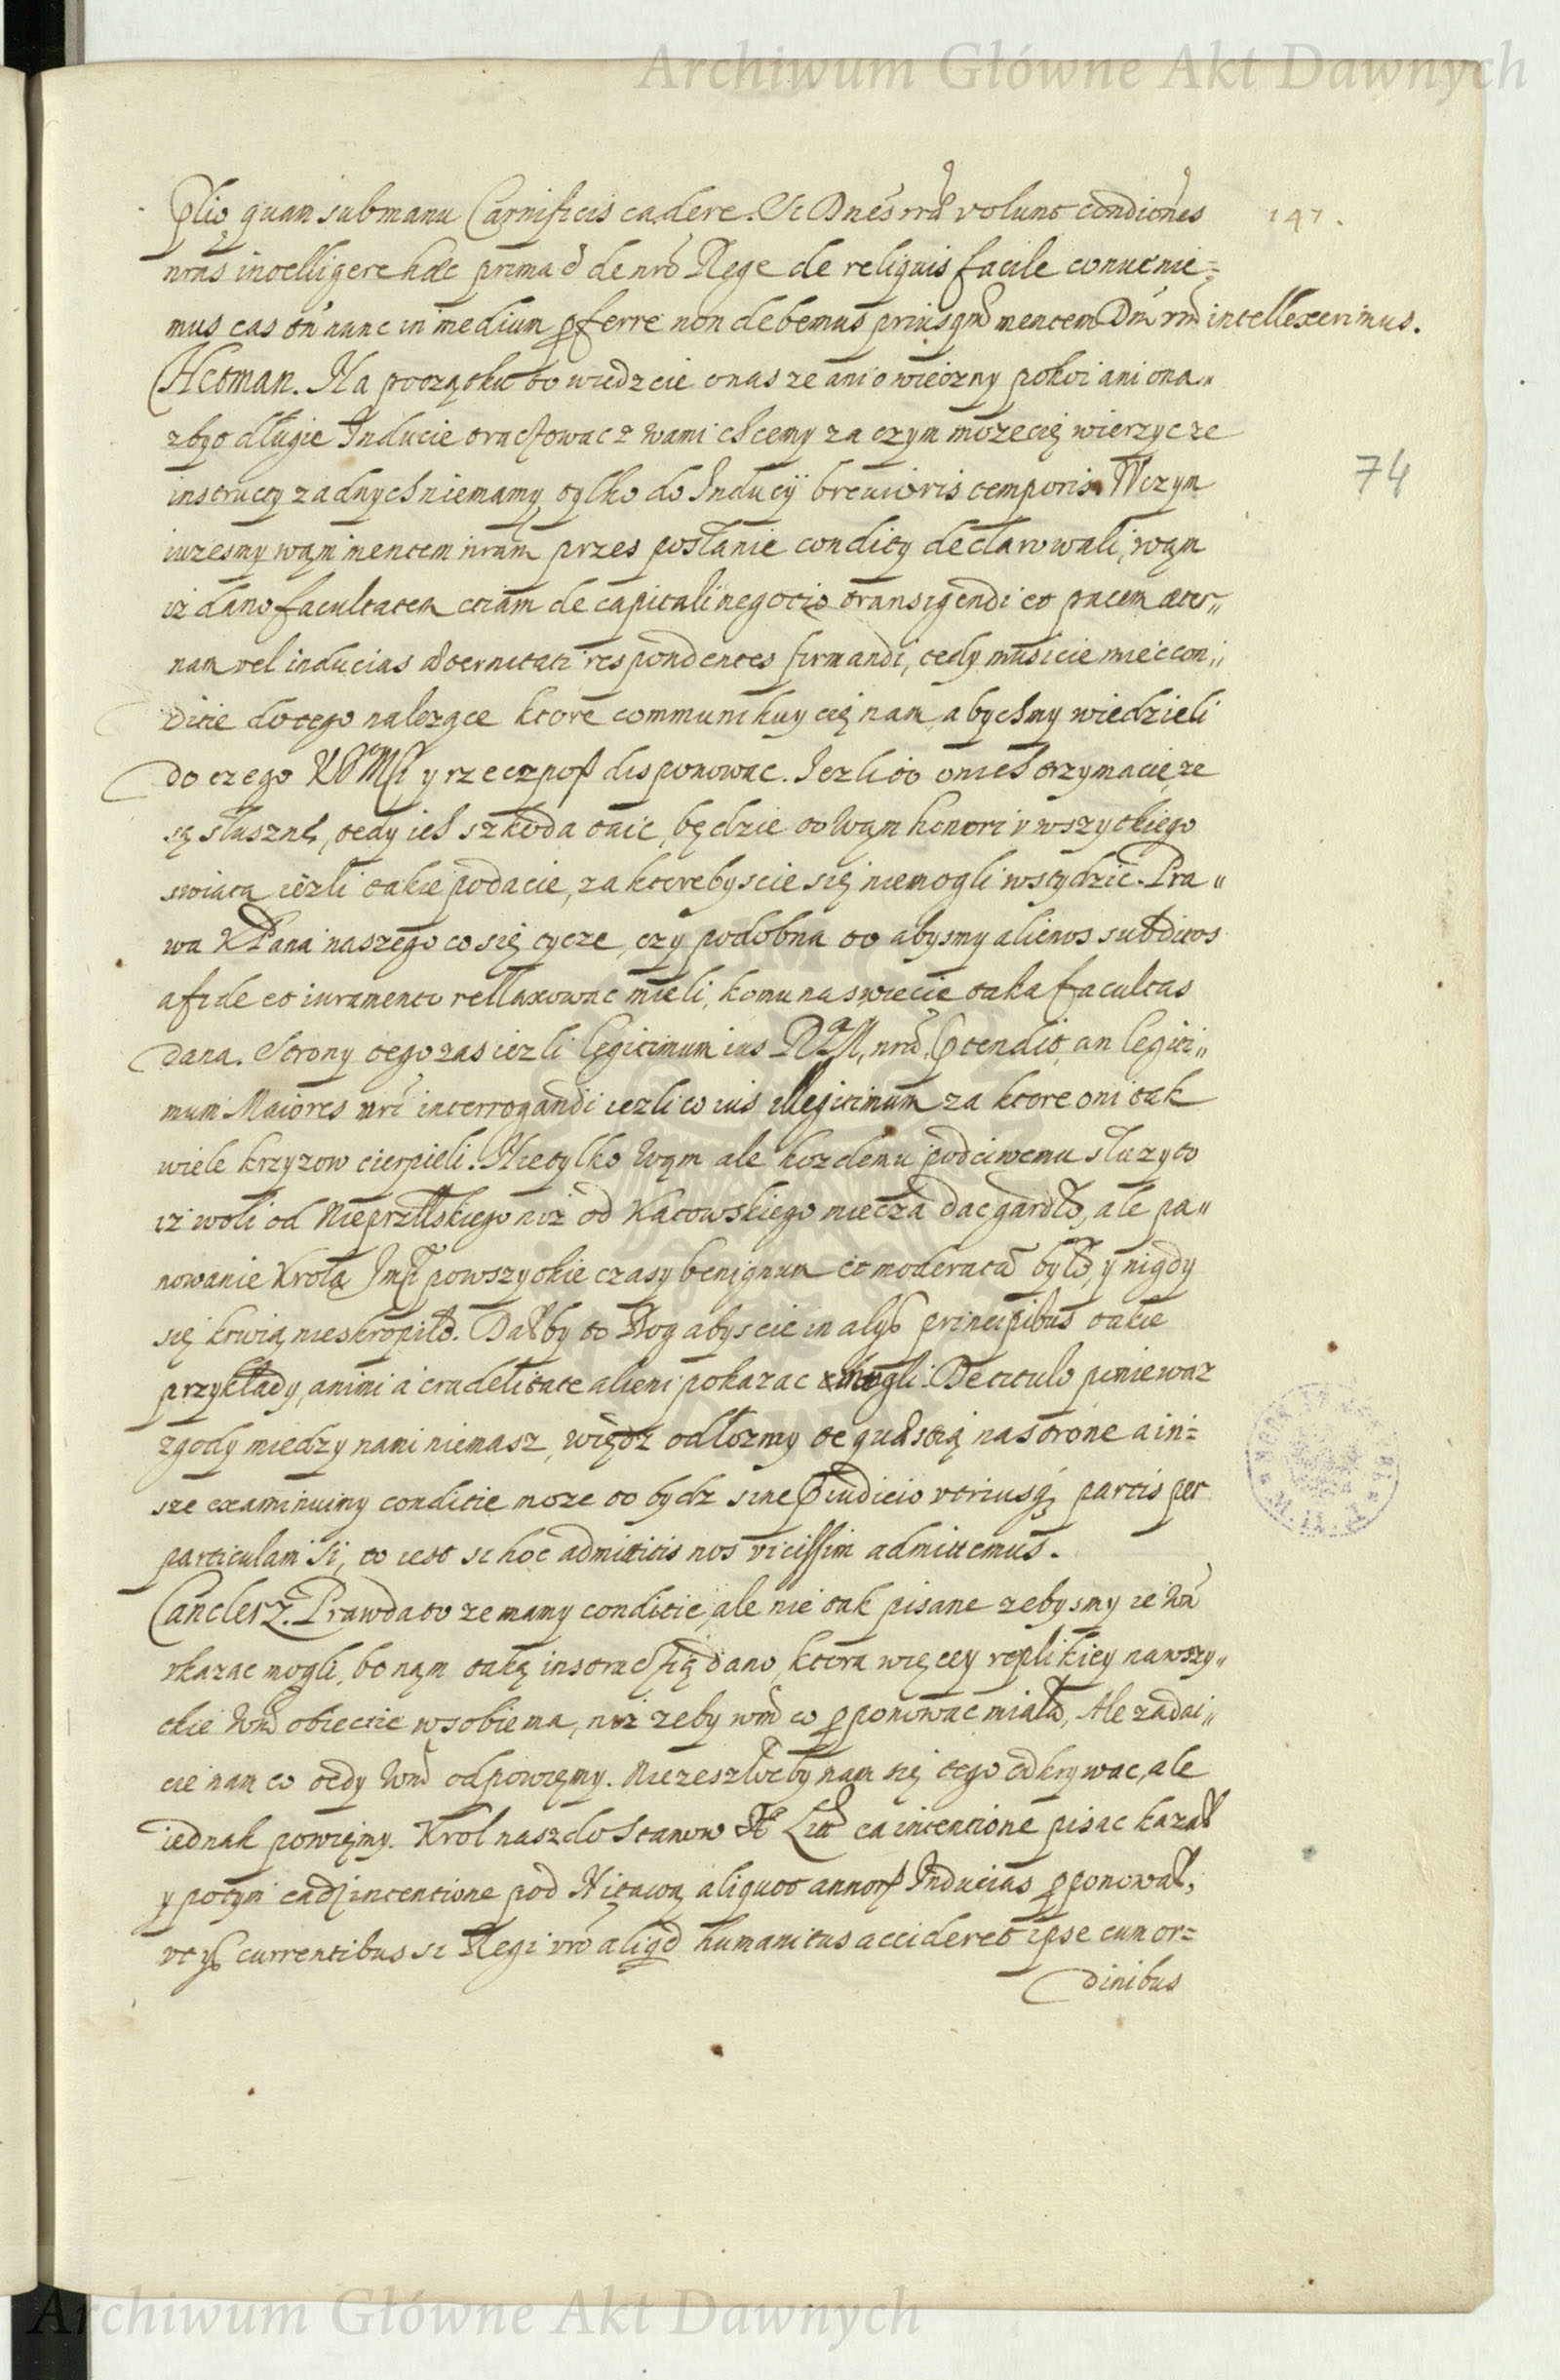 Archiwum Główne Akt Dawnych
plio quam sub manu Carnificis cadere. Si Dnes vrae volunt condiciones
147.
nras intelligere haec prima e de nro Rege de reliquis facile convenie=
mus eas tn nunc in medium proferre non debemus priusqm mentem Dm vrm intellexerimus.
Hetman. Na początku to wiedzcie o nas ze ani o wieczny pokoi ani o na„
zbyt długie Inducie tractowac z wami chcemy za czym mozecię wierzyc ze
instructy zadnych niemamy tylko do Inducÿ brevioris temporis. W czym
74
iuzesmy wąm mentem nram przes posłanie condity declarowali, wąm
iz dano facultatem etiam de capitali negotio transigendi et pacem aeter„
nam vel inducias aeternitati respondentes firmandi, tedy musicie miec con„
ditie do tego nalezące ktore communikuy cię nam abychmy wiedzieli
do czego KJMć y rzeczposp disponowac. Iezli to o nich trzymacię ze
są słuszne, tedy ich szkoda taic, będzie to wąm honori v wszytkiego
swiata iezli takie podacie, za ktorebyscie się niemogli wstydzic. Pra„
wa K Pana naszego co się tycze, czy podobna to abysmy alienos subditos
a fide et iuramento rellaxowac mieli, komu na swiecie taka facultas
dana. Strony tego zas iezli legitimum ius RaM. nra praetendit, an legiti„
mum Maiores vri interrogandi iezli to ius illegitimum za ktore oni tak
wiele krzyzow cierpieli. Nie tylko wąm ale kozdemu podciwemu słuzy to
iz woli od Nieprzllskiego niz od Katowskiego miecza dac gardło, ale pa„
nowanie Krola Jmći po wszytkie czasy benignum et moderatu było, y nigdy
się krwią nieskropiło. Dałby to Bog abyscie in alys principibus takie
przykłady, animi a crudelitate alieni pokazac mogli. De titulo poniewaz
zgody miedzy nami niemasz, więdz odłozmy te quaestią na strone a in=
sze examinuimy conditie moze to bydz sine praeiudicio vtriusq partis per
particulam si, to iest si hoc admittitis nos vicissim admittemus.
Canclerz. Prawda to ze mamy conditie, ale nie tak pisane zebysmy ie Wm
vkazac mogli, bo nąm taką instructią dano, ktora więcey repliki ey na wszy„
tkie Wm obiectie w sobie ma, niz zeby wm co proponowac miała, Ale zadai„
cie nam co tedy Wm odpowiemy. Niezeszłoby nam się tego odkrywac, ale
iednak powiemy. Krol nasz do Stanow Lit ea intentione pisac kazał
y potym eadem intentione pod Mitawą aliquot annorum Inducias proponował,
vt ys currentibus si Regi vro aliqd humanitus accideret ipse cum or=
dinibus
Archiwum Główne Akt Dawnych